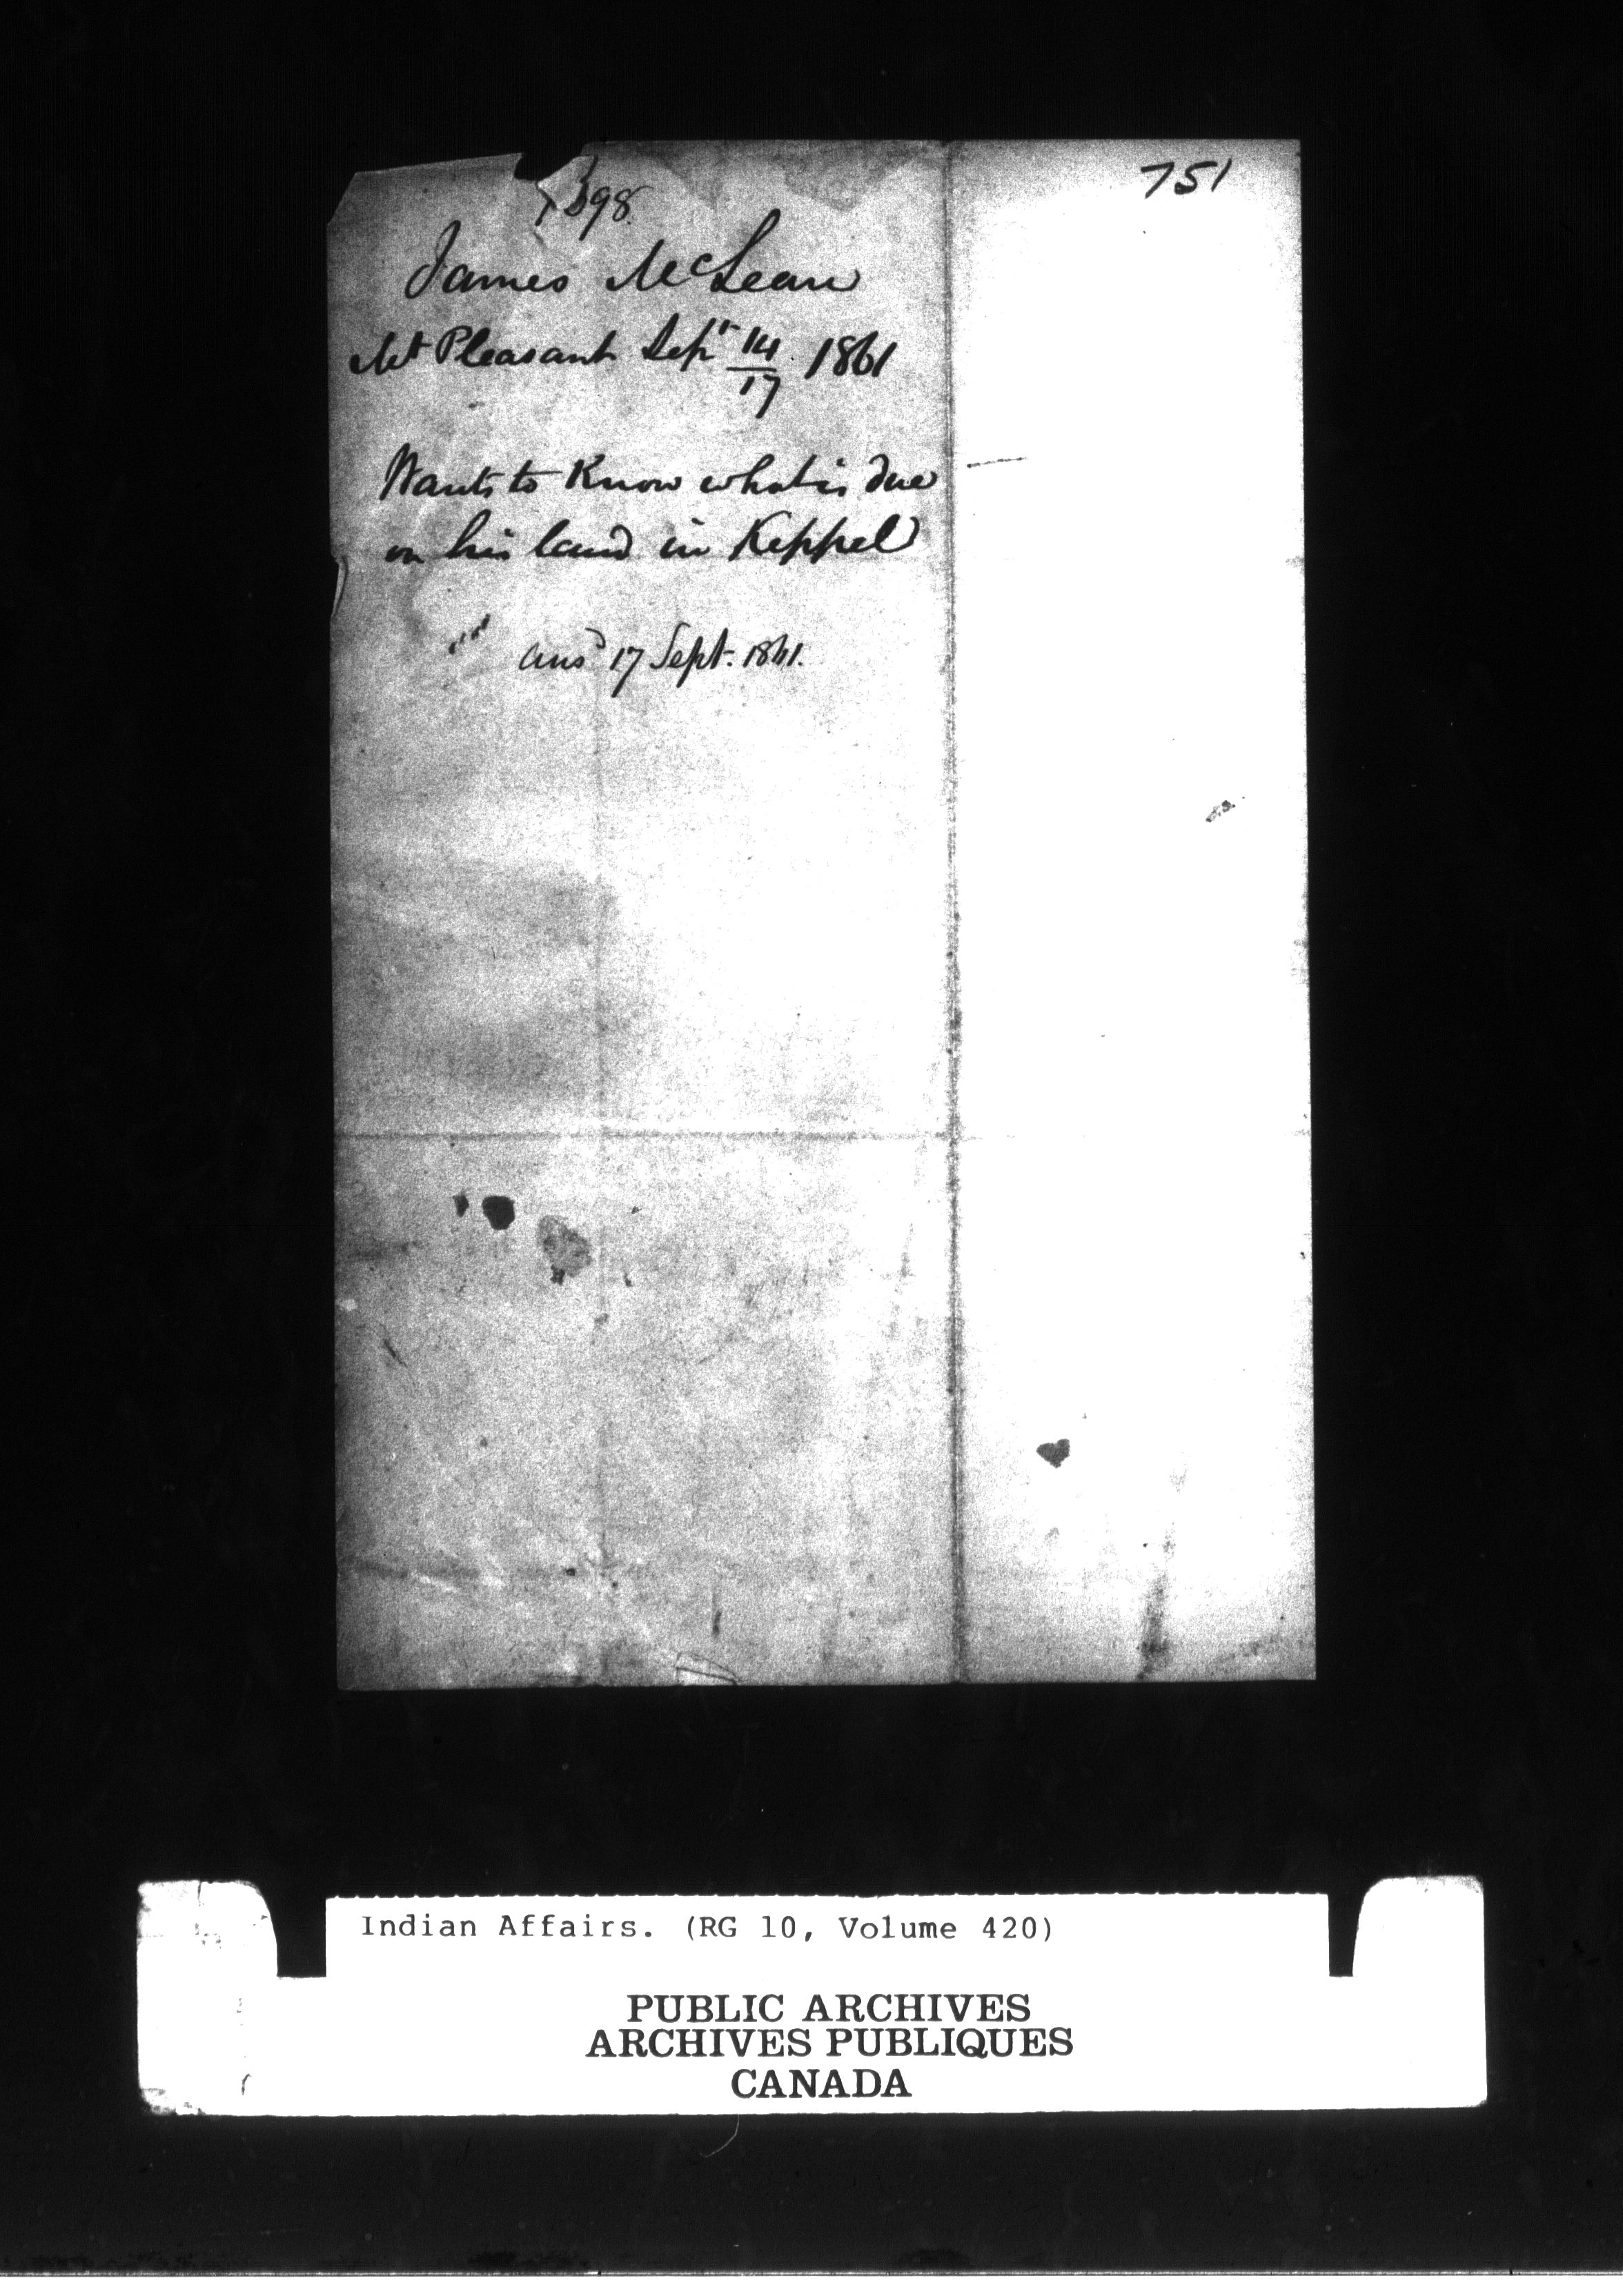 398
751
James McLean
Mt Pleasant Sept 14/17 1861
Wants to Know what is due
on his land in Keppel
ansd 17 Sept. 1861.
Indian Affairs. (RG 10, Volume 420)
PUBLIC ARCHIVES
ARCHIVES PUBLIQUES
CANADA